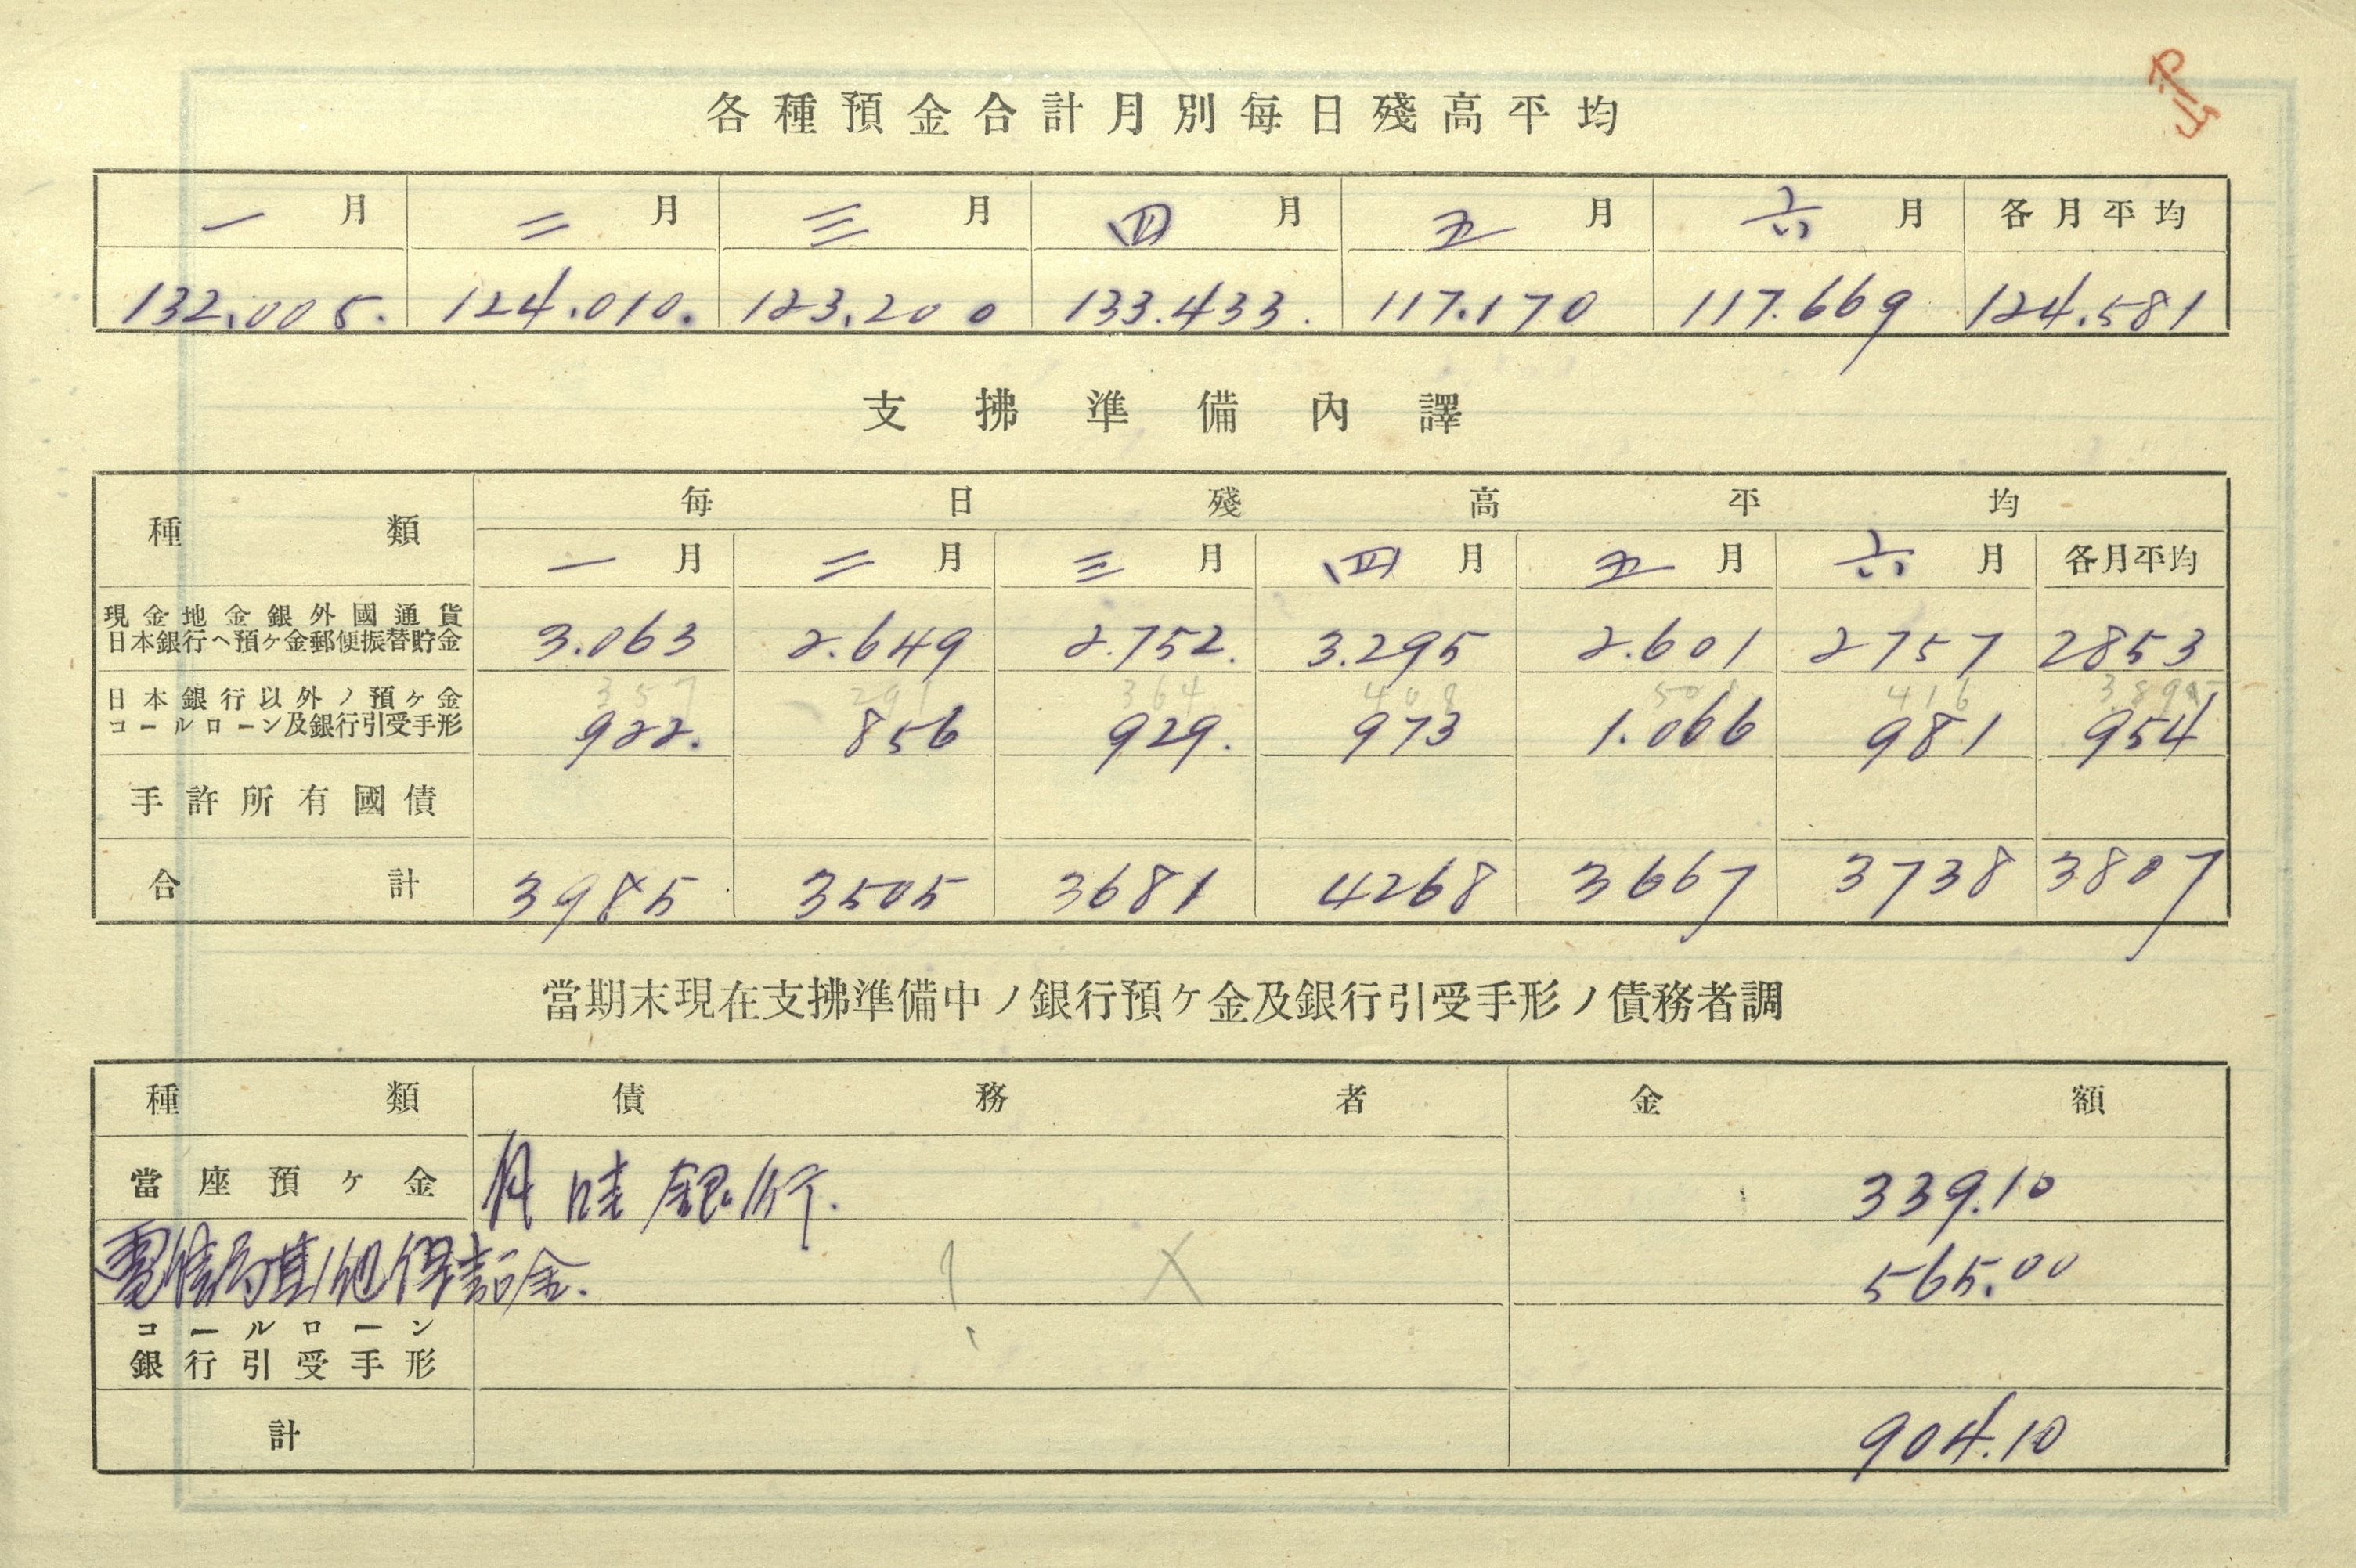 各種預金合計月別毎日殘高平均
一月 二月 三月 四月 五月 六月 各月平均
132,005. 124.010. 123,200 133.433. 117.170 117.669 124.581
支拂準備內譯
種類 毎日殘高平均
一月 二月 三月 四月 五月 六月 各月平均
現金地金銀外國通貨
日本銀行ヘ預ヶ金郵便振替貯金 3.063 2.649 2.752. 3.295 2.601 2757 2853
357 291 364 408 501 416
日本銀行以外ノ預ヶ金
コールローン及銀行引受手形 922. 856 929. 973 1.066 981 954
手許所有國債
合計 3985 3505 3681 4268 3667 3738 3807
當期末現在支拂準備中ノ銀行預ヶ金及銀行引受手形ノ債務者調
種類 債務者 金額
當座預ヶ金 銀行. 339.10
電信局其他保証金. 565.00
コールローン
銀行引受手形
計 904.10